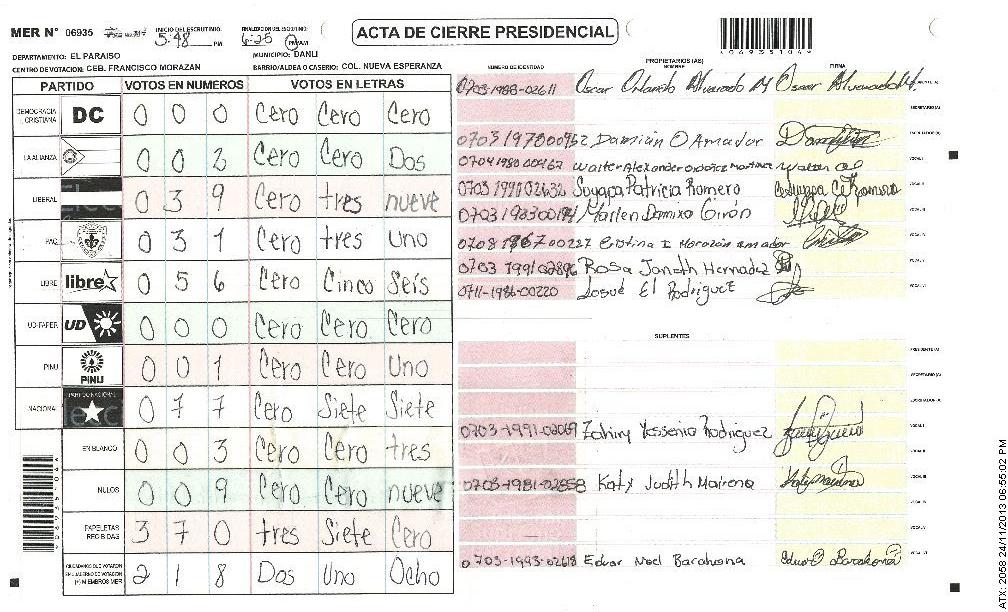 MER N° 06935 INICIO DEL ESCRUTINIO: 5:48 PM FINALIZACION DEL ESCRUTINIO: 6:25 PM
ACTA DE CIERRE PRESIDENCIAL
DEPARTAMENTO: EL PARAISO MUNICIPIO: DANLI
CENTRO DE VOTACION: CEB. FRANCISCO MORAZAN BARRIO/ALDEA O CASERIO: COL. NUEVA ESPERANZA
PARTIDO VOTOS EN NUMEROS VOTOS EN LETRAS
DEMOCRACIA CRISTIANA DC 0 0 0 Cero Cero Cero
LA ALIANZA 0 0 2 Cero Cero Dos
LIBERAL 0 3 9 Cero tres nueve
PAC 0 3 1 Cero tres Uno
LIBRE libre 0 5 6 Cero Cinco Seis
UD-FAPER UD 0 0 0 Cero Cero Cero
PINU PINU 0 0 1 Cero Cero Uno
NACIONAL PARTIDO NACIONAL 0 7 7 Cero Siete Siete
EN BLANCO 0 0 3 Cero Cero tres
NULOS 0 0 9 Cero Cero nueve
PAPELETAS RECIBIDAS 3 7 0 tres Siete Cero
CIUDADANOS QUE VOTARON EN CUADERNO DE VOTACION (+) MIEMBROS MER 2 1 8 Dos Uno Ocho
PROPIETARIOS (AS)
NUMERO DE IDENTIDAD NOMBRE FIRMA
0703-1988-02611 Oscar Orlando Alvarado M Oscar Alvarado M.
SECRETARIO (A)
0703197000962 Damián O Amador
0704198000467 Walter Alexander Ordoñez Martinez
0703199102632 Suyapa Patricia Romero
Marlen Damixa Girón
0708196700227 Cristina I Morazán Amador
0703199102896 Rosa Janeth Hernadez
0711-1986-00220 Josué El Rodriguez
SUPLENTES
PRESIDENTE (A)
SECRETARIO (A)
ESCRUTADOR (A)
0703-1991-02069 Zahiry Yessenia Rodriguez
0703-1981-02858 Katy Judith Mairena
0703-1993-02618 Eduar Noel Barahona Eduar Barahona
ATX: 2058 24/11/2013 06:55:02 PM